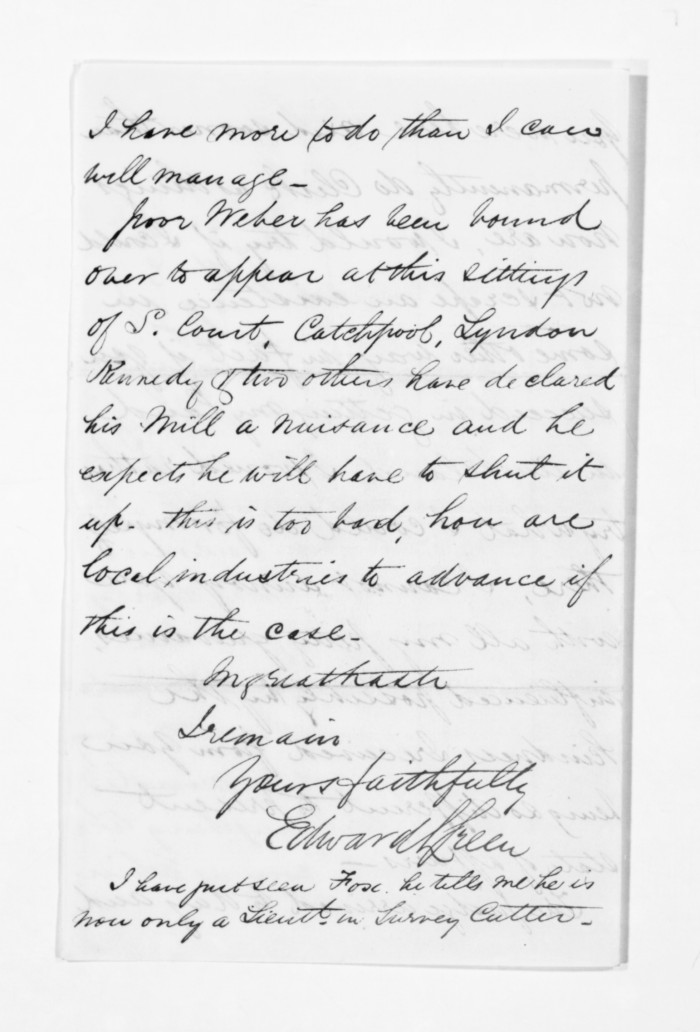 I have more to do than I can
well manage -
poor Weber has been bound
over to appear at this sittings
of S. Court, Catchpool, Lyndon
Kennedy & two others have declared
his Mill a Nuisance and he
expects he will have to shut it
up - this is too bad, how are
local industries to advance if
this is the case -
In great haste
I remain
Yours faithfully
Edward Green
I have just seen Fox. he tells me he is
now only a Lieut. in Survey Cutter -